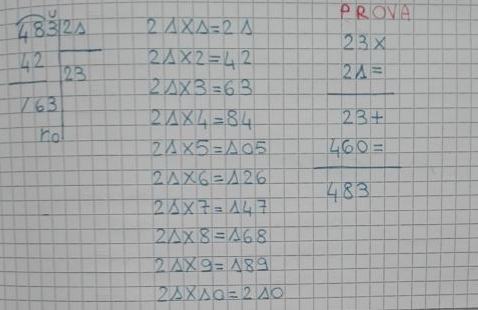 483 21
42 23
/63
r0
21X1=21
21X2=42
21X3=63
21X4=84
21X5=105
21X6=126
21X7=147
21X8=168
21X9=189
21X10=210
PROVA
23X
21=
23+
460=
483